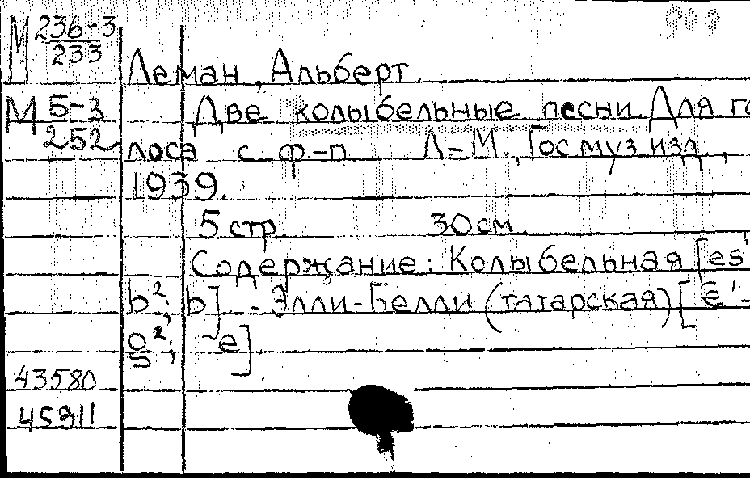 М 236-3
233
Леман, Альберт
М 5-3
252
Две колыбельные песни. Для го
лоса с ф-п. Л-М., Госмузизд.,
1939.
5 стр. 30 см.
Содержание: Колыбельная [es'
b²; b]. - Элли-Белли (татарская) [e'-
; e]
43580
45911